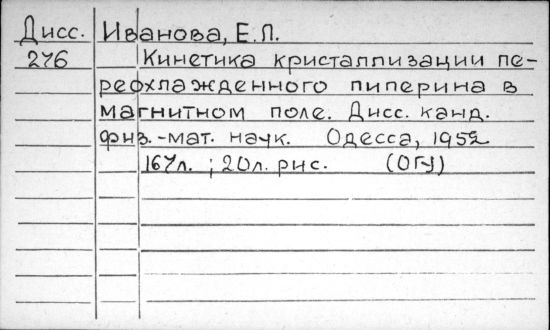 Дисс. Иванова, Е.Л.
276 Кинетика кристаллизации пе-
реохлажденного пиперина в
магнитном поле. Дисс. канд.
физ.-мат. наук. Одесса, 1952
167л. ; 20л. рис. (ОГУ)